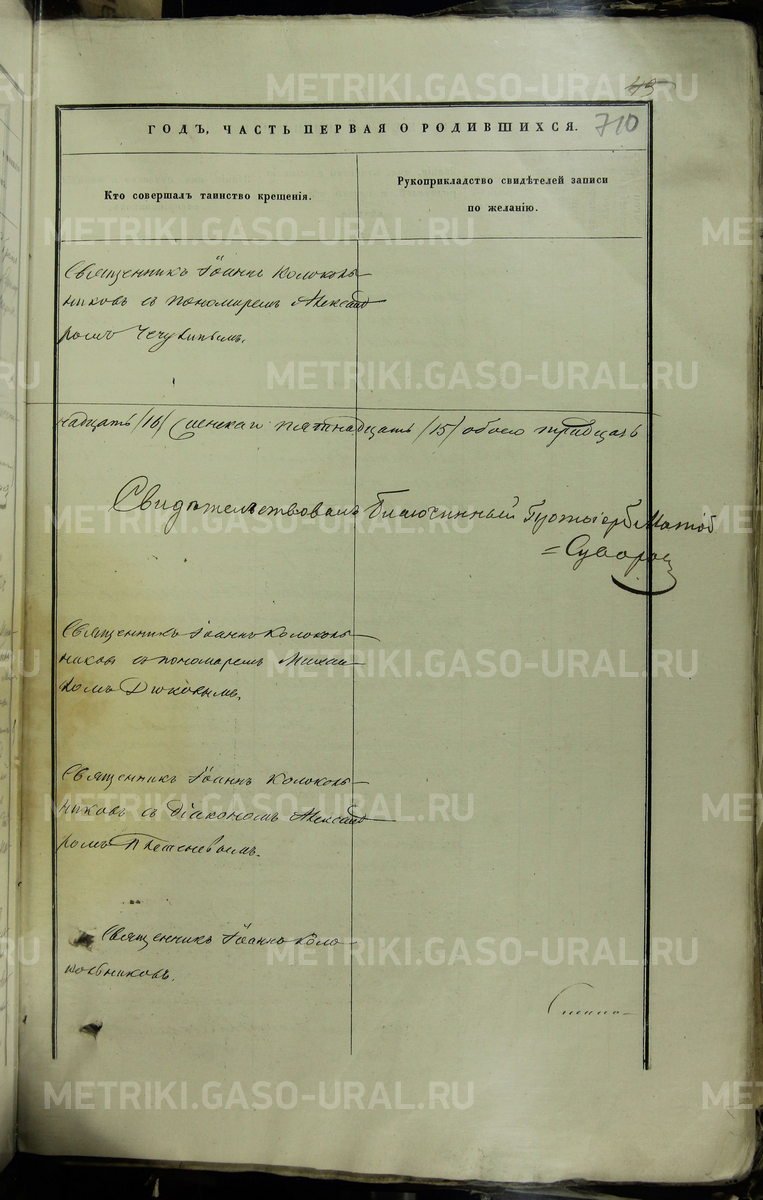 43
710
ГОДЪ, ЧАСТЬ ПЕРВАЯ О РОДИВШИХСЯ.
Кто совершалъ таинство крещенія.
Рукоприкладство свидѣтелей записи
по желанію.
Священникъ Іоаннъ Колоколь-
никовъ съ пономаремъ Александ-
ромъ
надцать /16/ женскаго пятнадцать /15/ обоего тридцать
Свидѣтельствовалъ Благочинный
Суворов
Священникъ Іоаннъ Колоколь-
никовъ съ пономаремъ Михаи-
ломъ
Священникъ Іоаннъ Колоколь-
никовъ съ діакономъ Александ-
ромъ
Священникъ Іоаннъ Коло-
кольниковъ.
METRIKI.GASO-URAL.RU